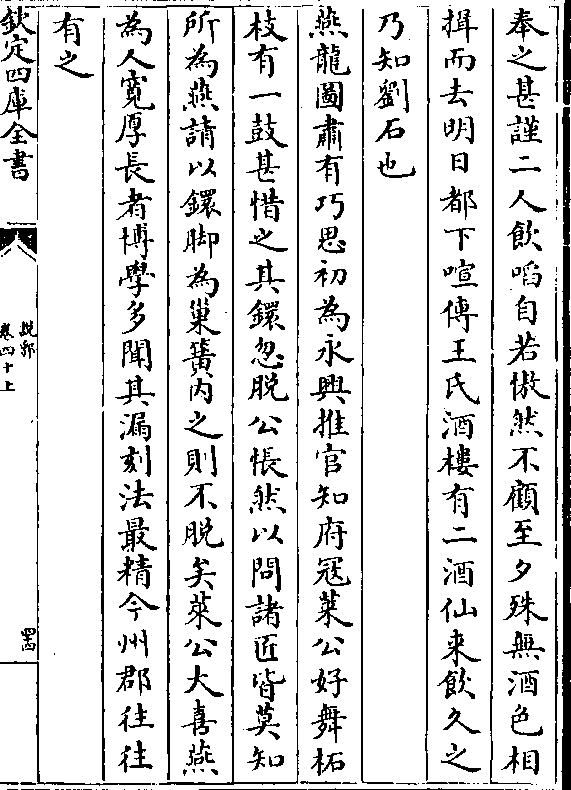 奉之甚謹二人飲啗自若傲然不顧至夕殊無酒色相
揖而去明日都下喧傳王氏酒樓有二酒仙来飲久之
乃知劉石也
燕龍圖肅有巧思初為永興推官知府冦萊公好舞柘
枝有一鼓甚惜之其鐶忽脱公悵然以問諸匠皆莫知
所為燕請以鐶脚為巢簧内之則不脱矣萊公大喜燕
為人寛厚長者博學多聞其漏刻法最精今州郡往往
有之
欽定四庫全書
説郛
卷四十上
四